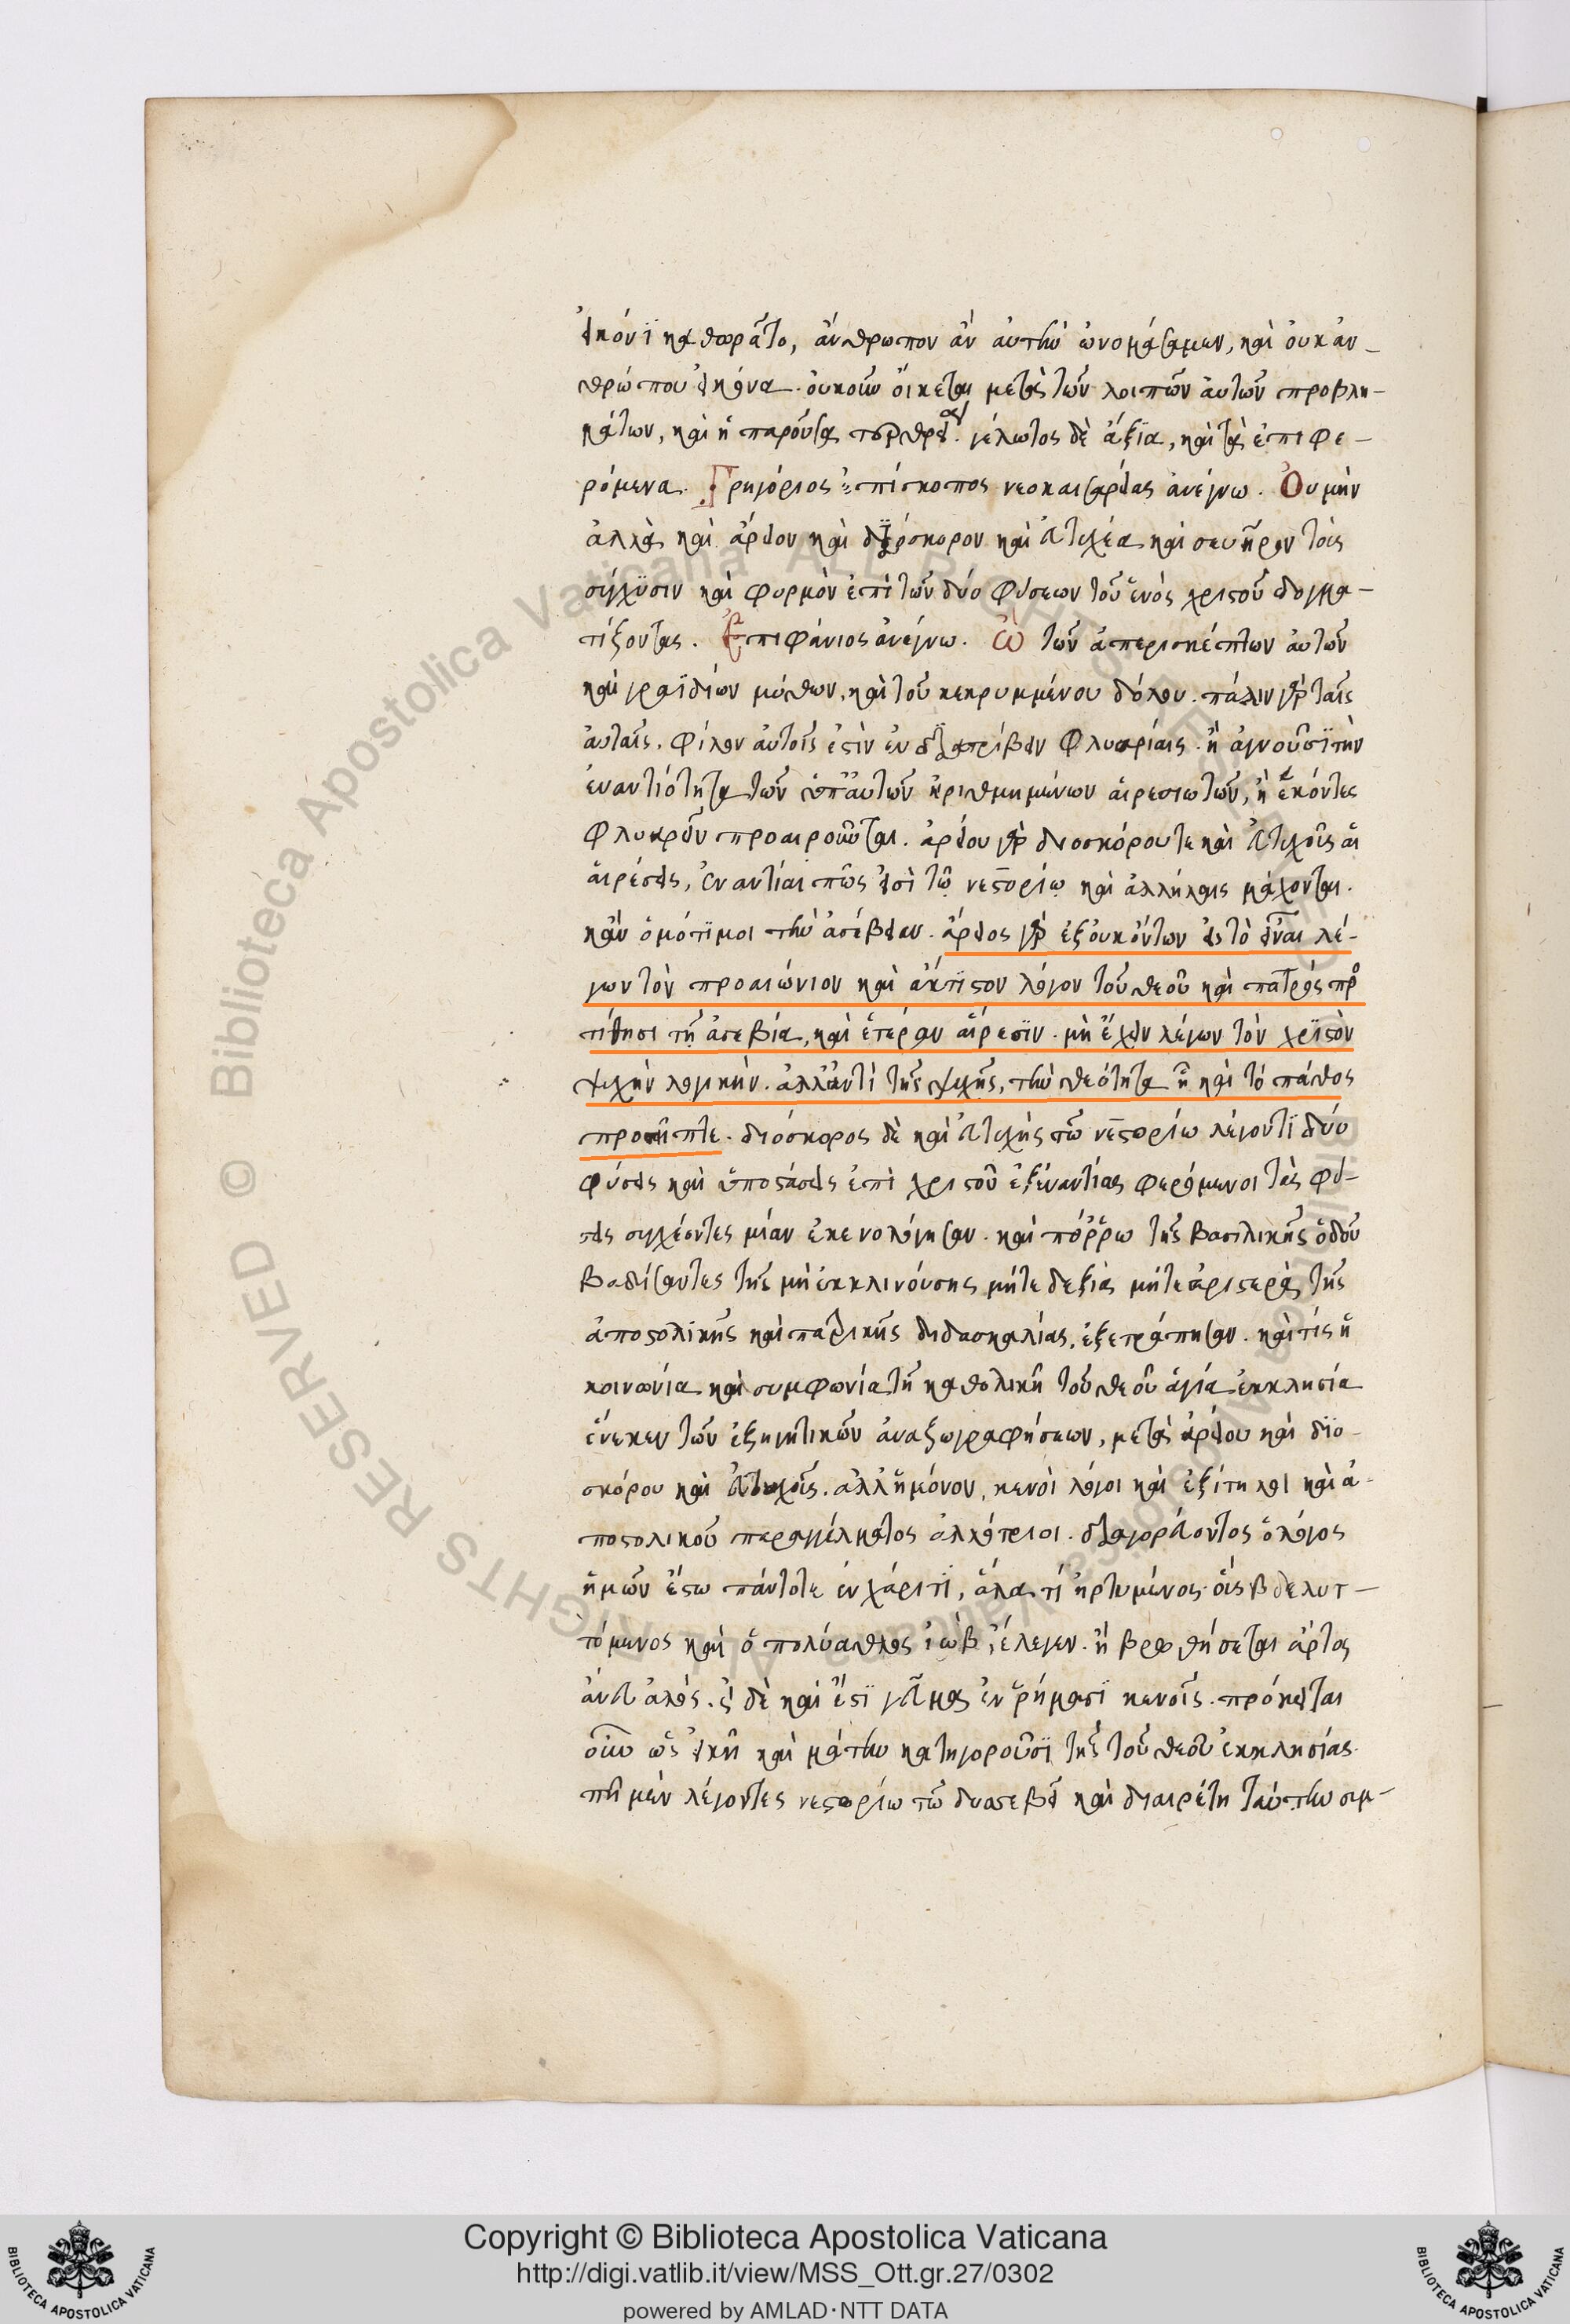 εἰκόνι καθωρᾶτο, ἄνθρωπον ἂν αὐτὴν ὠνομάσαμεν, καὶ οὐκ ἀν-
θρώπου εἰκόνα. οὐκοῦν οἴχεται μετὰ τῶν λοιπῶν αὐτῶν προβλη-
μάτων, καὶ ἡ παροῦσα γέλωτος δὲ ἀξία, καὶ τὰ ἐπιφε-
ρόμενα. Γρηγόριος ἐπίσκοπος νεοκαισαρείας ἀνέγνω. Οὐ μὴν
ἀλλὰ καὶ ἄρειον καὶ διόσκορον καὶ εὐτυχέα καὶ σευῆρον τοὺς
σύγχυσιν καὶ φυρμὸν ἐπὶ τῶν δύο φύσεων τοῦ ἑνὸς χριστοῦ δογμα-
τίζοντας. Ἐπιφάνιος ἀνέγνω. Ὢ τῶν ἀπερισκέπτων αὐτῶν
καὶ γραϊδίων μύθων, καὶ τοῦ κεκρυμμένου δόλου. πάλιν γὰρ ταῖς
αὐταῖς. φίλον αὐτοῖς ἐστὶν ἐνδιατρίβειν φλυαρίαις. ἢ ἀγνοοῦσι τὴν
ἐναντιότητα τῶν ὑπ' αὐτῶν ἠριθμημένων αἱρεσιωτῶν, ἢ ἑκόντες
φλυαρεῖν προαιροῦνται. ἀρείου γὰρ διοσκόρου τε καὶ εὐτυχοῦς αἱ
αἱρέσεις, ἐναντίαι πως εἰσὶ τῷ νεστορίῳ καὶ ἀλλήλαις μάχονται.
κἂν ὁμότιμοι τὴν ἀσέβειαν. ἄρειος γὰρ ἐξ οὐκ ὄντων εἰς τὸ εἶναι λέ-
γων τὸν προαιώνιον καὶ ἄκτιστον λόγον τοῦ θεοῦ καὶ πατρὸς προσ
τίθησι τῇ ἀσεβία, καὶ ἑτέραν αἵρεσιν. μὴ ἔχειν λέγων τὸν χριστὸν
ψυχὴν λογικήν. ἀλλ' ἀντὶ τῆς ψυχῆς, τὴν θεότητα ᾗ καὶ τὸ πάθος
προσῆπτε. διόσκορος δὲ καὶ εὐτυχὴς τῷ νεστορίῳ λέγοντι δύο
φύσεις καὶ ὑποστάσεις ἐπὶ χριστοῦ ἐξεναντίας φερόμενοι τὰς φύ-
σεις συγχέοντες μίαν ἐκενολόγησαν. καὶ πόρρω τῆς βασιλικῆς ὁδοῦ
βαδίσαντες τῆς μὴ ἐκκλινούσης μήτε δεξιὰ μήτε ἀριστερὰ τῆς
ἀποστολικῆς καὶ πατρικῆς διδασκαλίας, ἐξετράπησαν. καὶ τίς ἡ
κοινωνία καὶ συμφωνία τῇ καθολικῇ τοῦ θεοῦ ἁγία ἐκκλησία
ἕνεκεν τῶν ἐξηγητικῶν ἀναζωγραφήσεων, μετὰ ἀρείου καὶ διο-
σκόρου καὶ εὐτυχοῦς. ἀλλ' ἢ μόνον, κενοὶ λόγοι καὶ ἐξίτηλοι καὶ ἀ-
ποστολικοῦ παραγγέλματος ἀλλότριοι. διαγορεύοντος ὁ λόγος
ἡμῶν ἔστω πάντοτε ἐν χάριτι, ἅλατι ἠρτυμένος. οἷς βδελυτ-
τόμενος καὶ ὁ πολύαθλος ἰὼβ, ἔλεγεν. ἢ βρωθήσεται ἄρτος
ἄνευ ἁλός. εἰ δὲ καὶ ἔστι γεῦμα ἐν ῥήμασι κενοῖς. πρόκειται
οὖν ὡς εἰκῆ καὶ μάτην κατηγοροῦσι τῆς τοῦ θεοῦ ἐκκλησίας.
πῆ μὲν λέγοντες νεστορίῳ τῷ δυσσεβεῖ καὶ διαιρέτη ταύτην συμ-
Copyright © Biblioteca Apostolica Vaticana
http://digi.vatlib.it/view/MSS_Ott.gr.27/0302
powered by AMLAD·NTT DATA